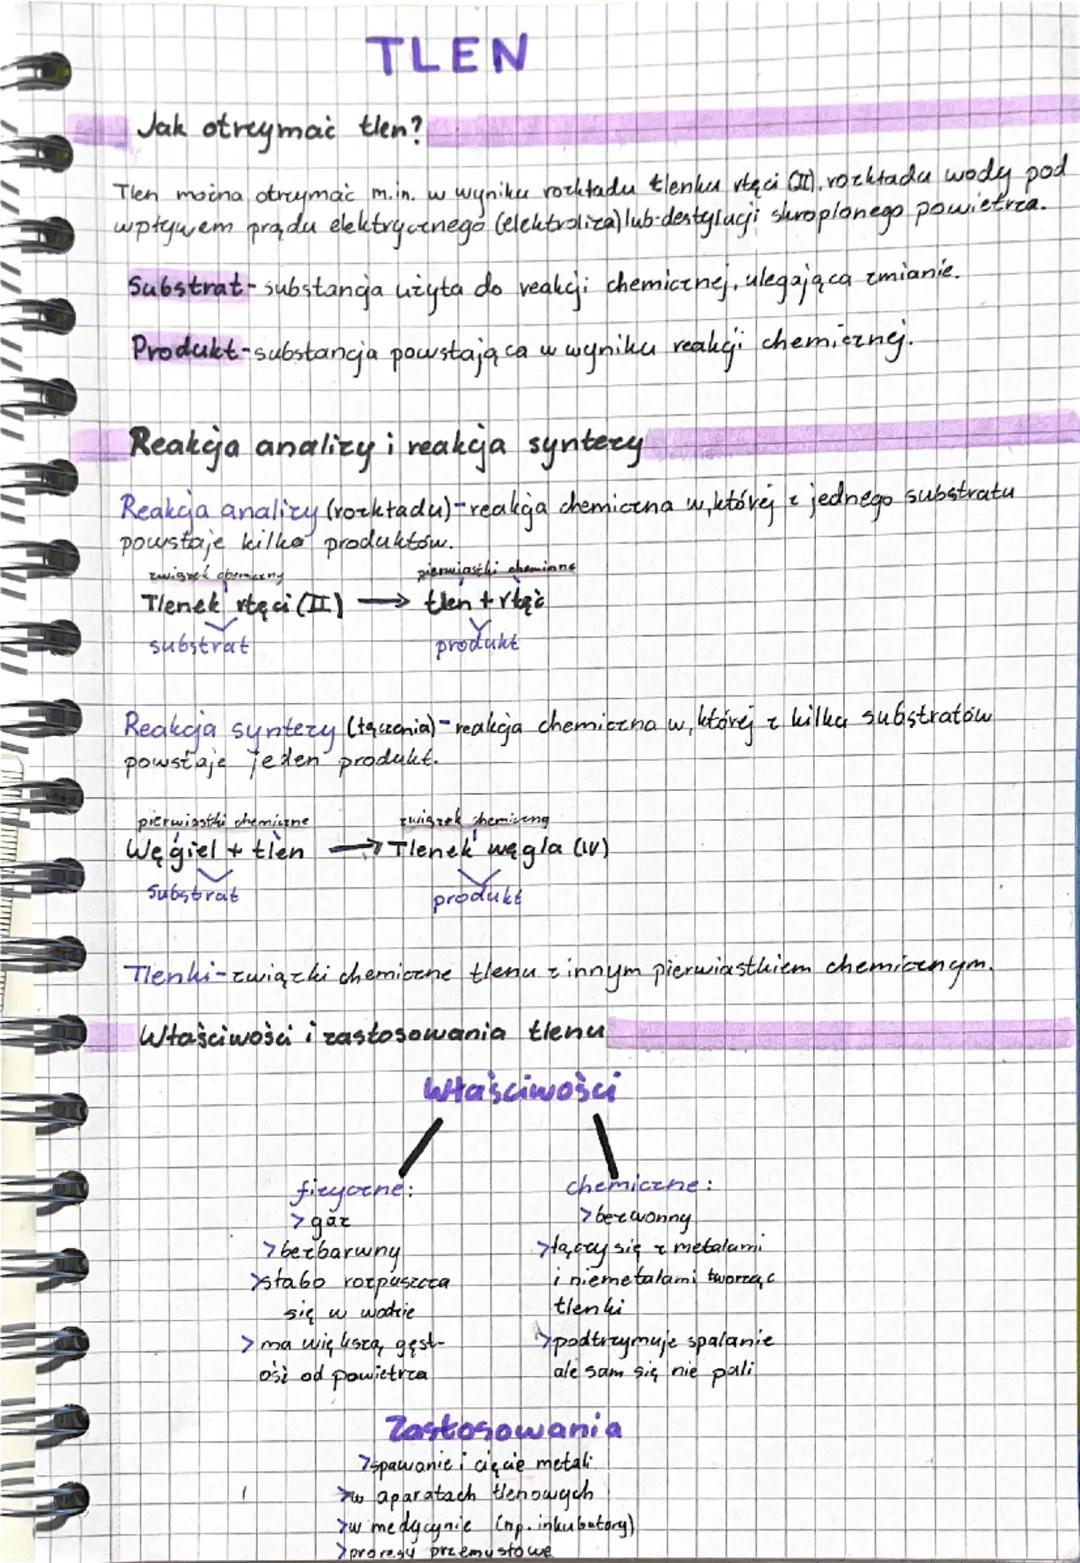 TLEN
Jak otrzymać tlen?
Tlen można otrzymać m.in. w wyniku rozkładu tlenku rtęci (II), rozkładu wody pod
wpływem prądu elektrycznego (elektroliza) lub destylacji skroplonego powietrza.
Substrat - substancja użyta do reakcji chemicznej, ulegająca zmianie.
Produkt - substancja powstająca w wyniku reakcji chemicznej.
Reakcja analizy i reakcja syntezy
Reakcja analizy (rozkładu) - reakcja chemiczna w, której z jednego substratu
powstaje kilka produktów.
związek chemiczny pierwiastki chemiczne
Tlenek rtęci (II) → tlen + rtęć
substrat produkt
Reakcja syntezy (łączenia) - reakcja chemiczna w, której z kilku substratów
powstaje jeden produkt.
pierwiastki chemiczne związek chemiczny
Węgiel + tlen → Tlenek węgla (IV)
Substrat produkt
Tlenki - związki chemiczne tlenu z innym pierwiastkiem chemicznym.
Właściwości i zastosowania tlenu
Właściwości
fizyczne: chemiczne:
> gaz > bezwonny
> bezbarwny > łączy się z metalami
> słabo rozpuszcza i niemetalami tworząc
się w wodzie tlenki
> ma większą gęst- > podtrzymuje spalanie
ość od powietrza ale sam się nie pali
Zastosowania
> spawanie i cięcie metali
> w aparatach tlenowych
> w medycynie (np. inkubatory)
> procesy przemysłowe